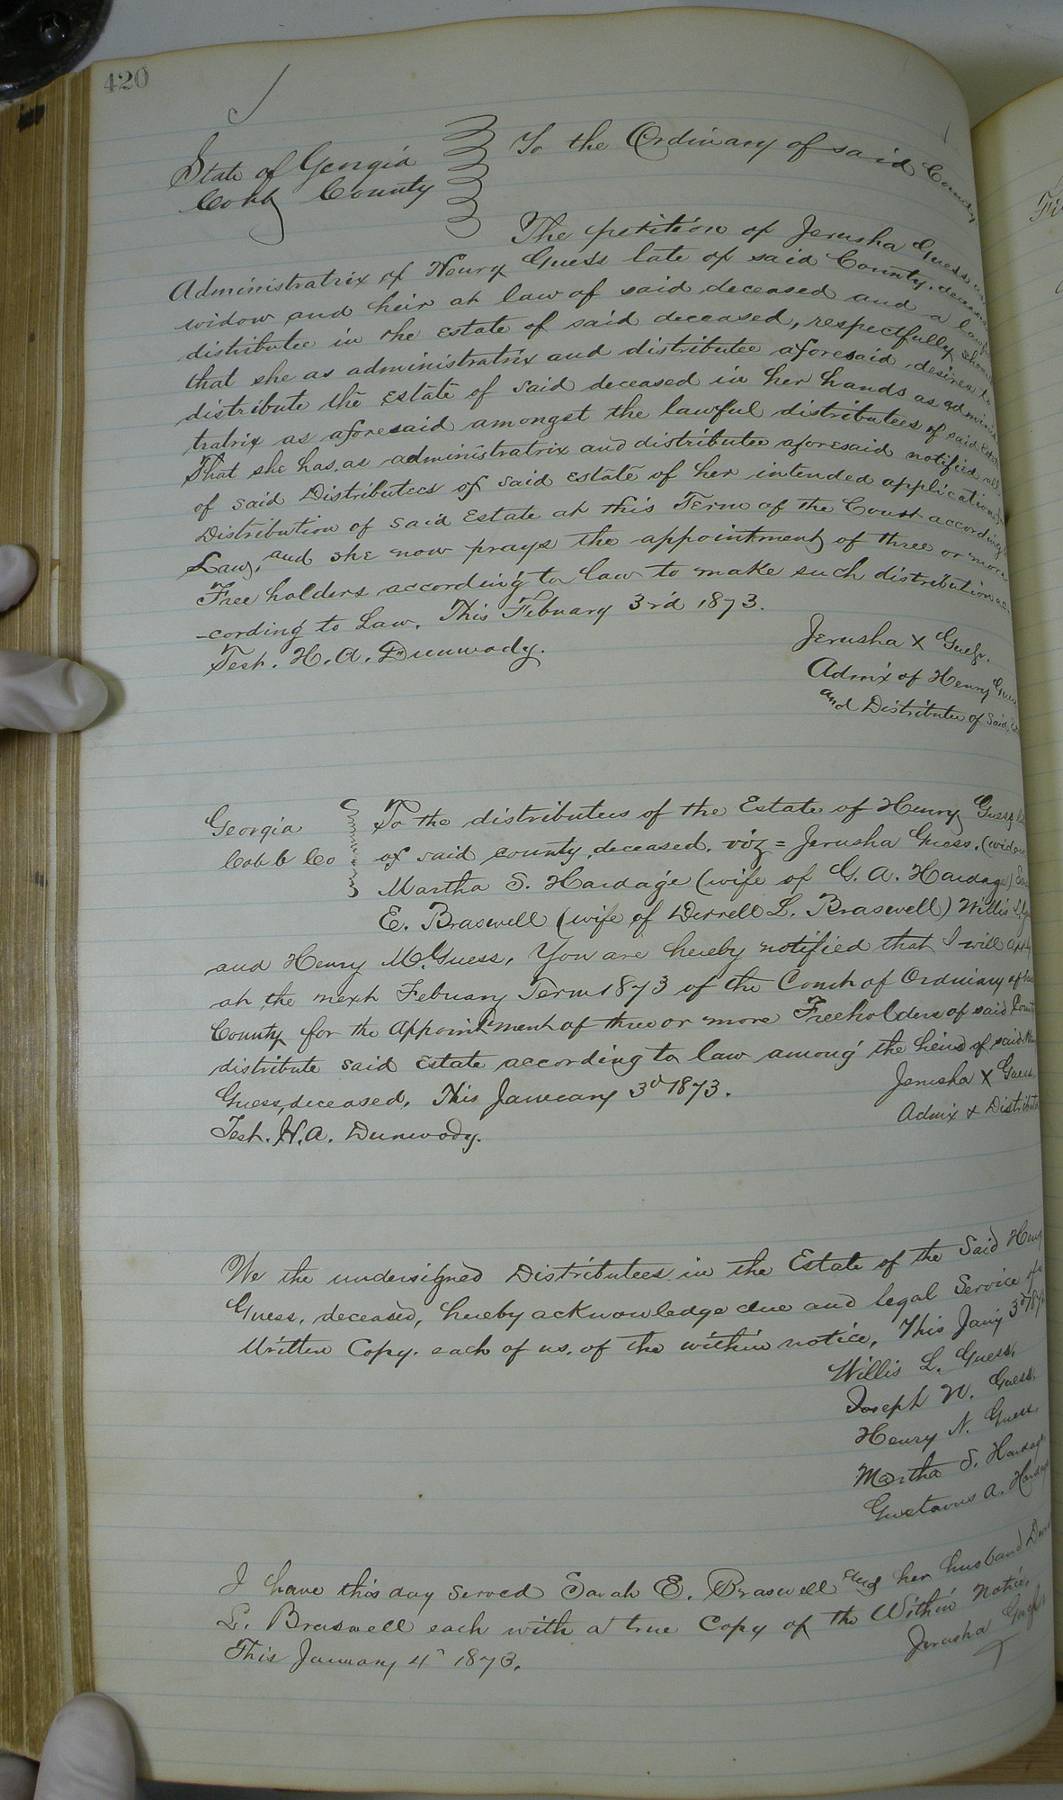 420
State of Georgia
Cobb County
To the Ordinary of said County
The petition of Jerusha Guess
Administratrix of Henry Guess late of said County, deceased
widow and heir at law of said deceased and a
distributee in the Estate of said deceased, respectfully
that she as administratrix and distributee aforesaid desires to
distribute the Estate of said deceased in her hands as
tratrix as aforesaid amongst the lawful distributees of said
That she has, as administratrix and distributee aforesaid notified all
of said Distributees of said Estate of her intended application
Distribution of said Estate at this Term of the Court according
Law, and she now prays the appointment of three or more
Free holders according to law to make such distribution ac-
-cording to Law. This Febuary 3rd 1873.
Test. H. A. Dunwody.
Jerusha X Guess.
Admx of Henry
and Distributee of Said
Georgia
Cobb Co
To the distributees of the Estate of Henry Guess
of said county, deceased. viz = Jerusha Guess, (widow
Martha S. Hardage (wife of G. A. Hardage)
E. Braswell (wife of Derrell L. Braswell) Willis L.
and Henry N. Guess, You are hereby notified that I will
at the next Febuary Term 1873 of the Court of Ordinary of
County for the Appointment of three or more Freeholders of said
distribute said Estate according to law among the heirs of said
Guess, deceased, This January 3d 1873.
Test. H. A. Dunwody.
Jerusha X Guess
Admx & Distributee
We the undersigned Distributees in the Estate of the Said Henry
Guess, deceased, hereby acknowledge due and legal Service of
Written Copy. each of us. of the within notice, This Jany 3d
Willis L. Guess.
Joseph N. Guess.
Henry N. Guess.
Martha S. Hardage
Gustavus A. Hardage
I have this day served Sarah E. Braswell and her husband
L. Braswell each with a true Copy of the Within Notice.
This January 4" 1873.
Jerusha Guess
X